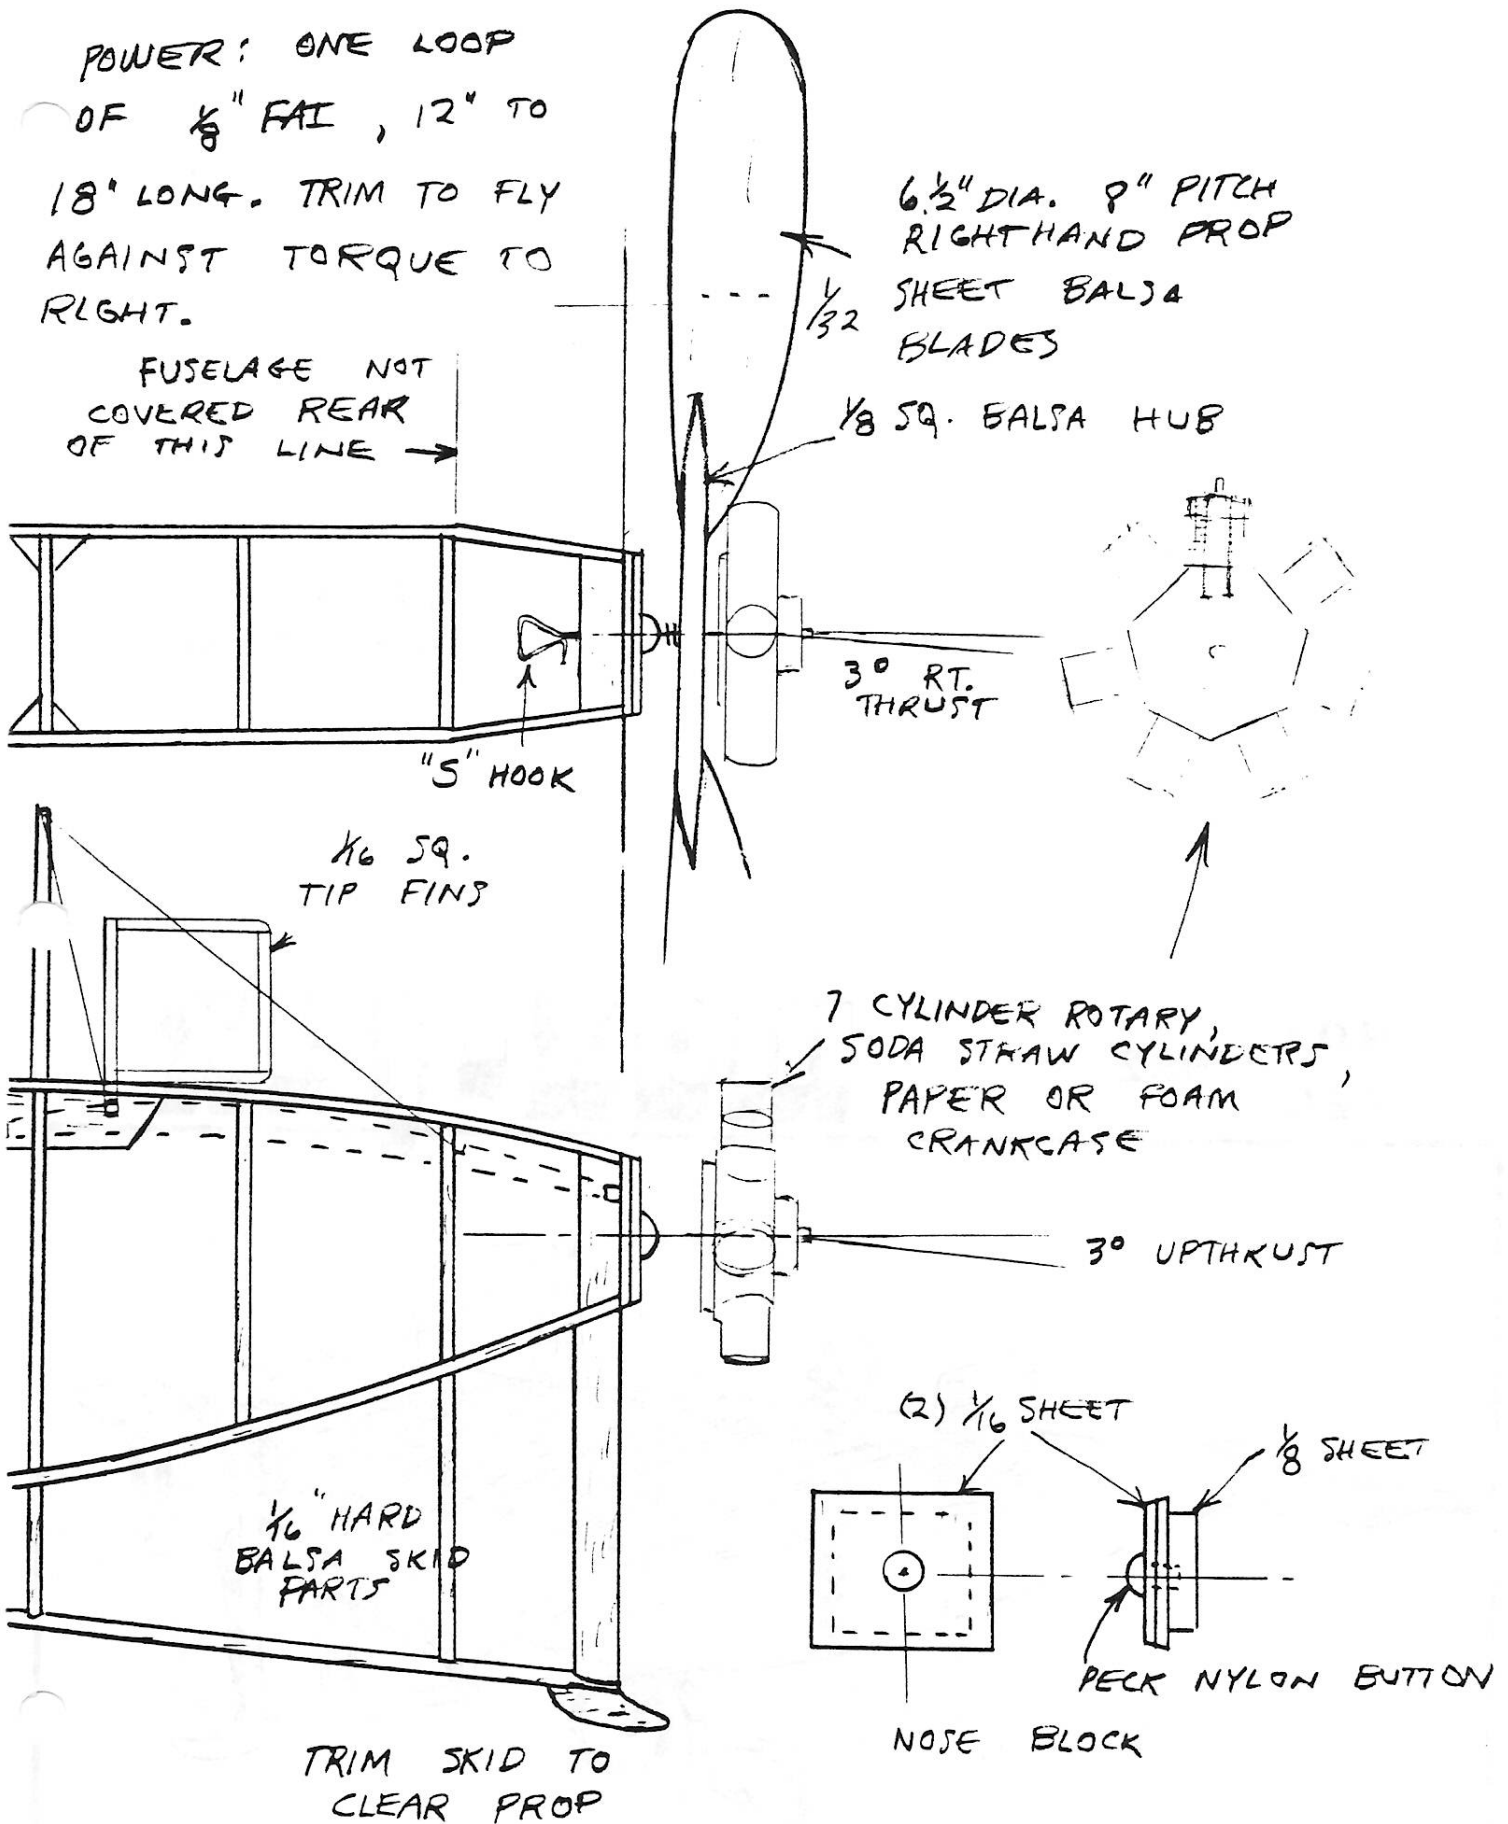 POWER: ONE LOOP
OF 1/8" FAI, 12" TO
18" LONG. TRIM TO FLY
AGAINST TORQUE TO
RIGHT.
FUSELAGE NOT
COVERED REAR
OF THIS LINE
6 1/2" DIA. 8" PITCH
RIGHTHAND PROP
1/32 SHEET BALSA
BLADES
1/8 SQ. BALSA HUB
3° RT.
THRUST
"S" HOOK
1/16 SQ.
TIP FINS
7 CYLINDER ROTARY,
SODA STRAW CYLINDERS,
PAPER OR FOAM
CRANKCASE
3° UPTHRUST
1/16" HARD
BALSA SKID
PARTS
(2) 1/16 SHEET
1/8 SHEET
PECK NYLON BUTTON
NOSE BLOCK
TRIM SKID TO
CLEAR PROP